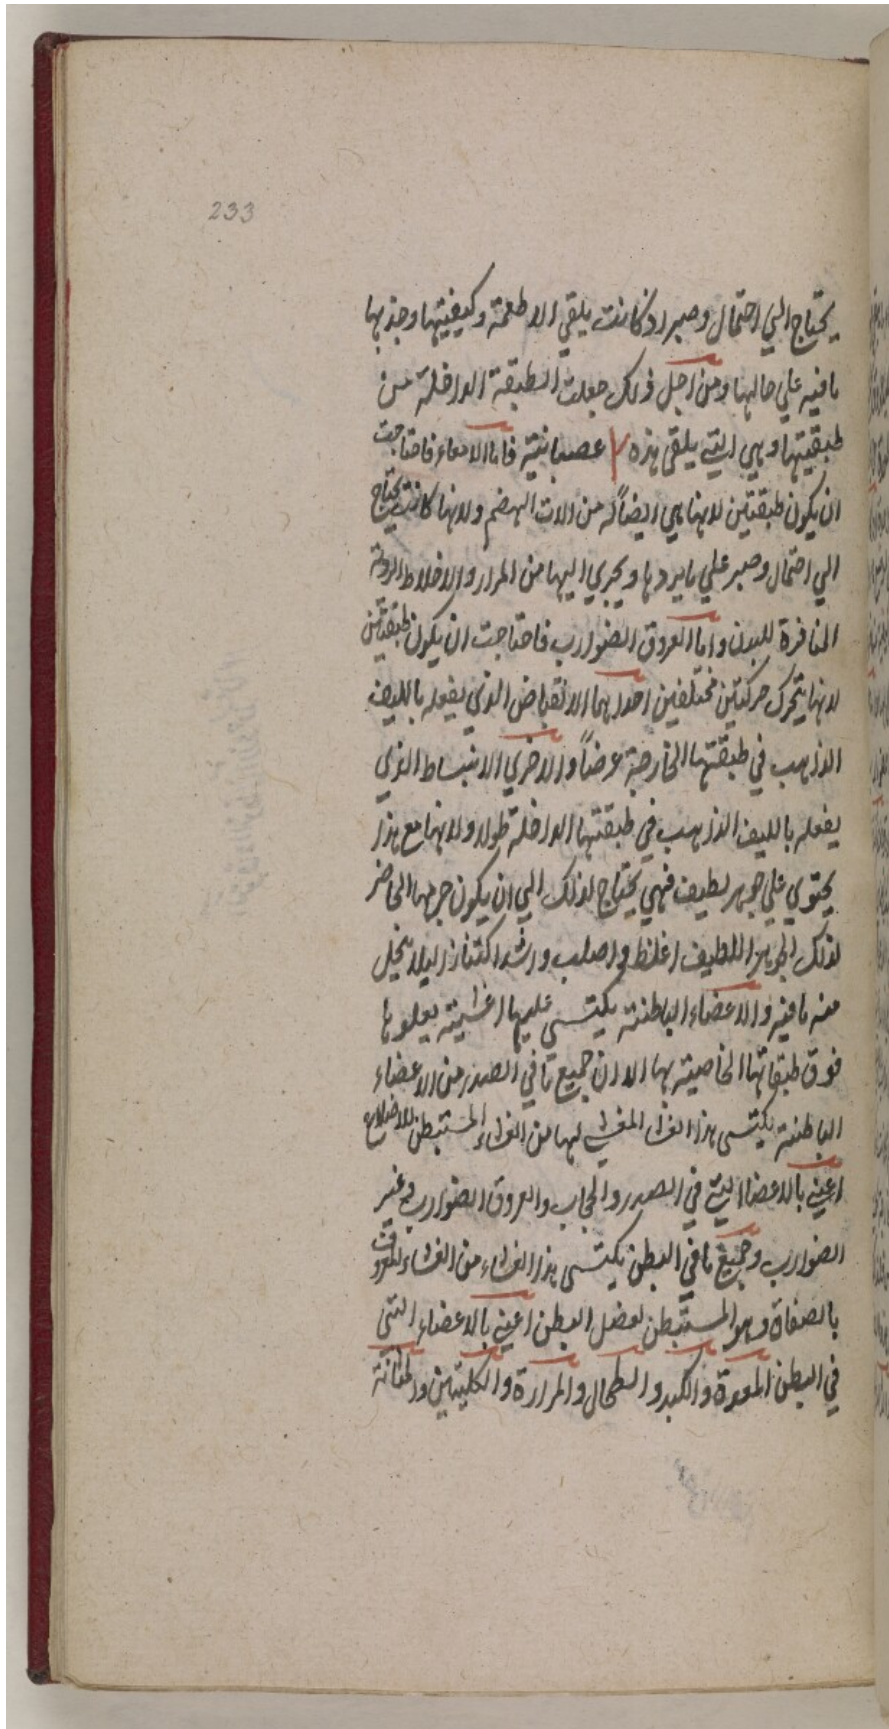 233
يحتاج الي احتمال وصبر اذ كانت يلقي الاطعمة وكيفيتها وجذبها
مافيه علي حالها ومن اجل ذلك جعلت الطبقة الداخلة من
طبقيتها وهي التي يلقي هذه عصبانية فاما الامعاء فاحتاجت
ان يكون طبقتين لانها هي ايضاً من الات الهضم ولانها كانت يحتاج
الي احتمال وصبر علي مايردها ويجري اليها من المرار والاخلاط الردية
المنافرة للبدن واما العروق الضوارب فاحتاجت ان يكون طبقتين
لانها يتحرك حركتين مختلفين احدايهما الانقباض الذي يفعله بالليف
الذاهب في طبقتها الخارجة عرضاً والاخري الانبساط الذي
يفعله بالليف الذاهب في طبقتها الداخلة طولا ولانها مع هذا
يحتوي علي جوهر لطيف فهي يحتاج لذلك الي ان يكون جرمها الحاضر
لذلك الجوهر اللطيف اغلظ واصلب واشد اكتنازا ليلا يتحلل
منه مافيه والاعضاء الباطنة يكتسي عليها اغشية يعلوها
فوق طبقاتها الخاصية بها الا ان جميع مافي الصدر من الاعضاء
الباطنة يكتسي هذا الغشاء المغشي لها من الغشاء المستبطن للاضلاع
اعني بالاعضا التي في الصدر والحجاب والعروق الضوارب وغير
الضوارب وجميع مافي البطن يكتسي هذا الغشاء من الغشاء المعروف
بالصفاق وهو المستبطن لعضل البطن اعني بالاعضاء التي
في البطن المعدة والكبد والطحال والمرارة والكليتين والمثانة